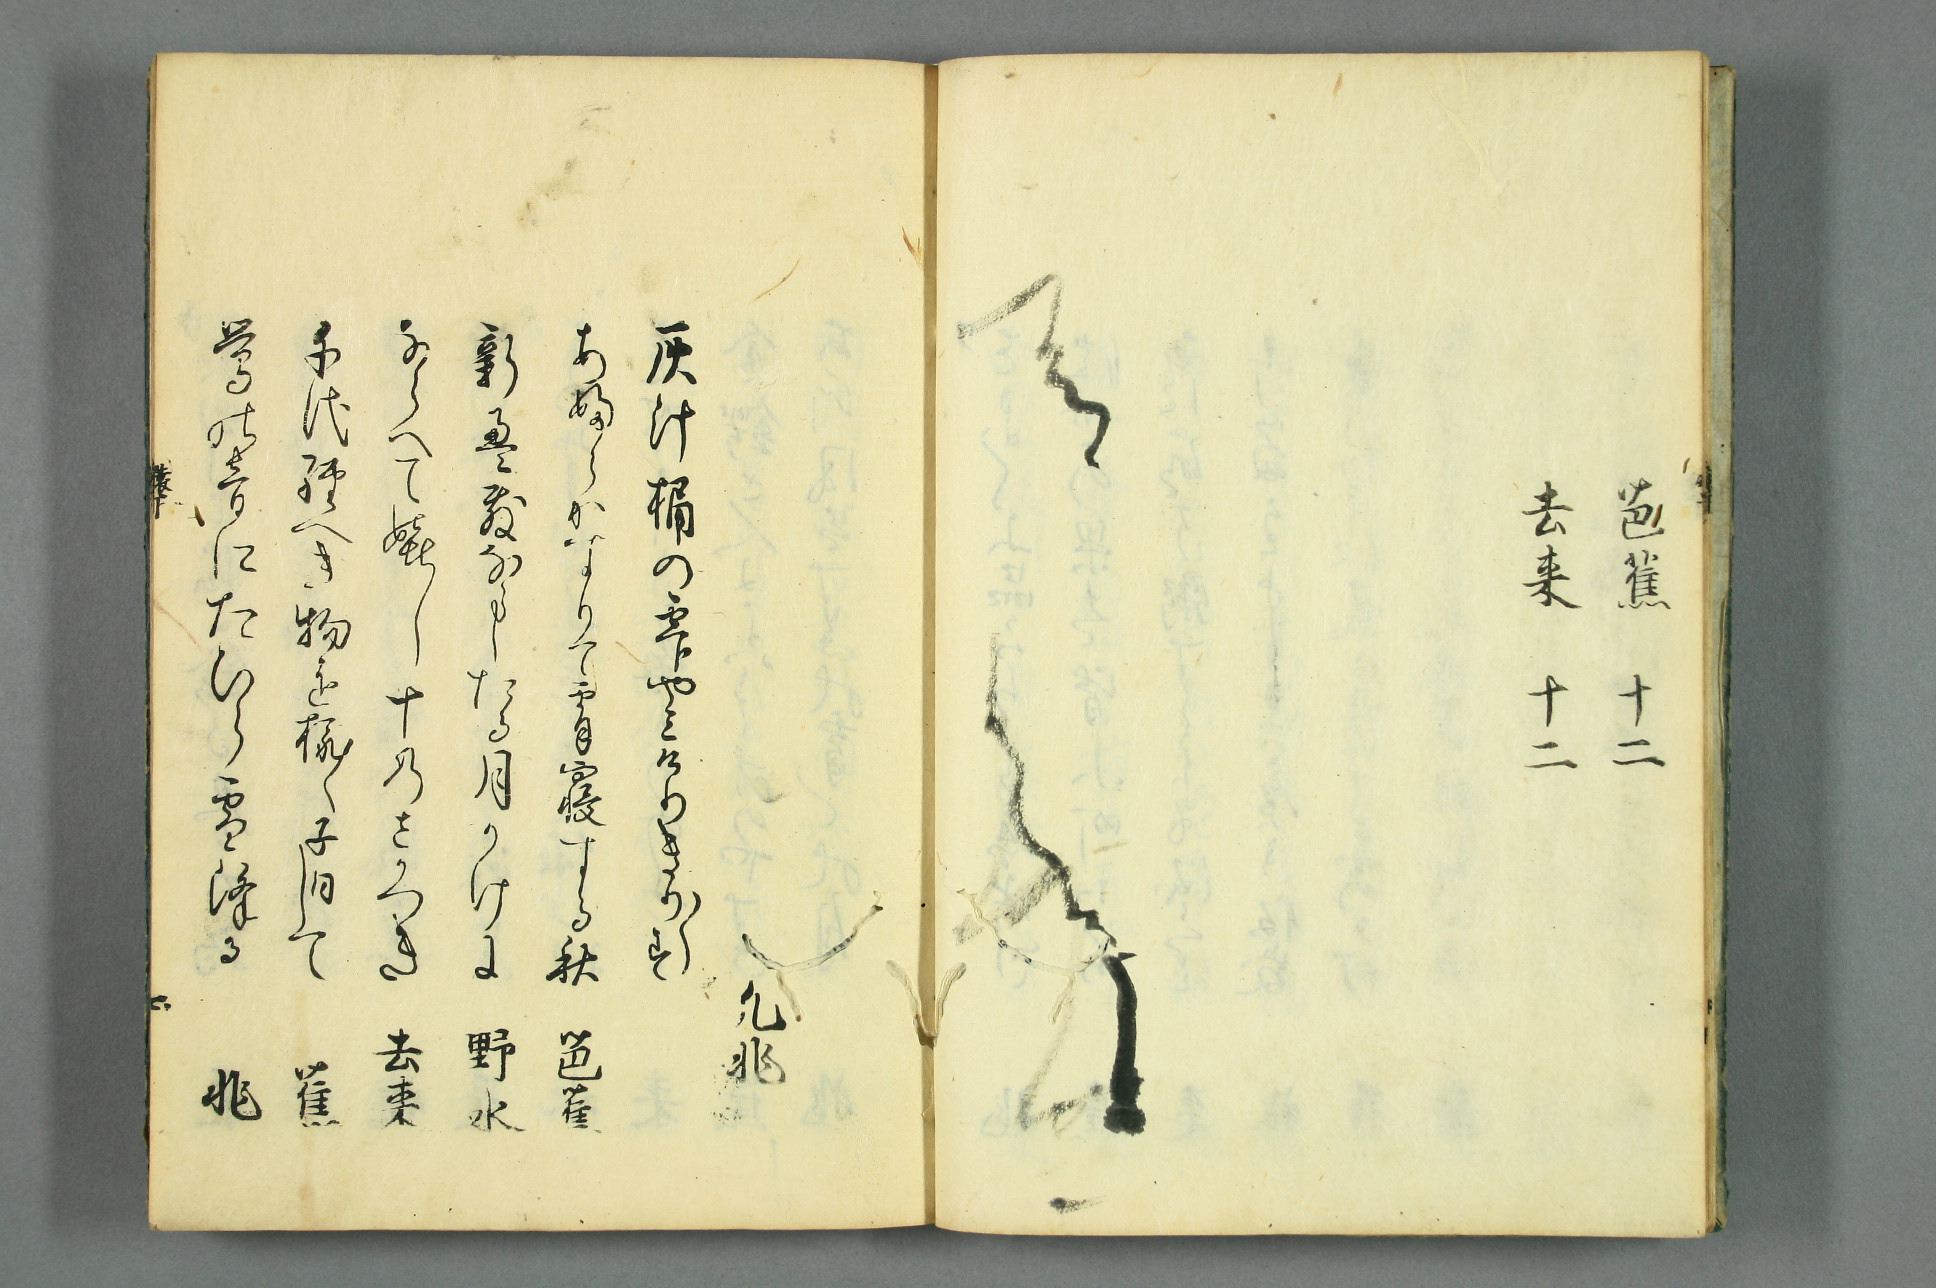 芭蕉 十二
去来 十二
凡兆
灰汁桶の雫やミけりきり〱す
あふらかすりて宵寝する秋 芭蕉
新畳敷ならしたる月かけに 野水
ならへて嬉し十のさかつき 去来
千代経へき物を様〱子日して 蕉
鶯の音にたひら雪降る 兆